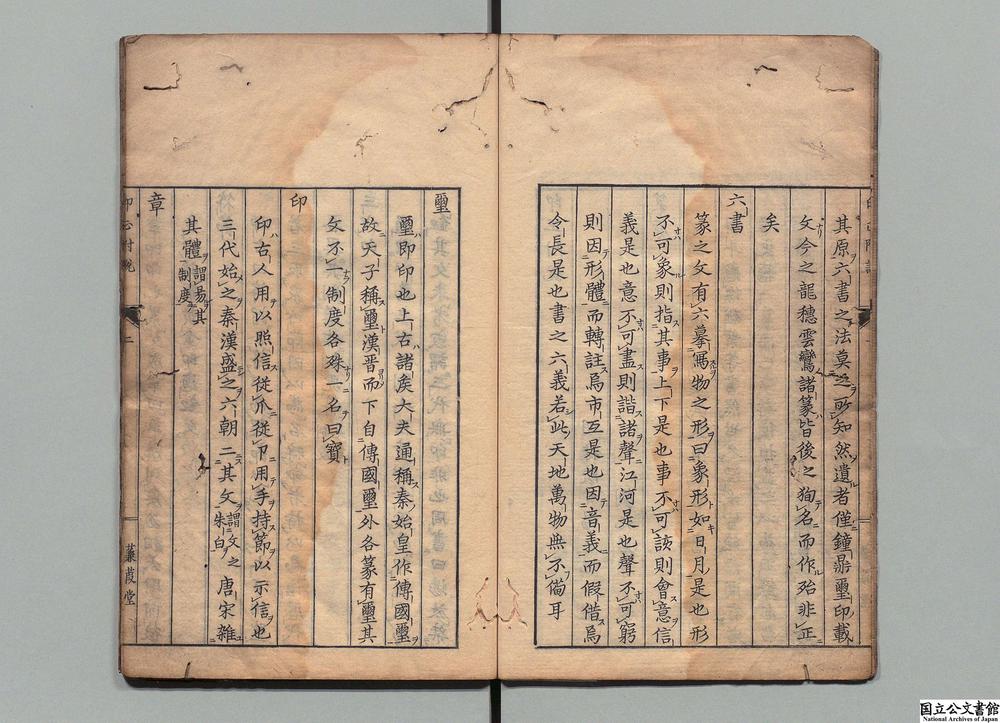 其原六書之法莫之所知然遺者僅鐘鼎璽印載
文今之龍穗雲鸞諸篆皆後之狥名而作殆非正
矣
六書
篆之文有六摹寫物之形曰象形如日月是也形
不可象則指其事上下是也事不可該則會意信
義是也意不可盡則諧諸聲江河是也聲不可窮
則因形體而轉註焉市互是也因音義而假借焉
令長是也書之六義若此天地萬物無不備耳
璽
璽即印也上古諸矦大夫通稱秦始皇作傳國璽
故天子稱璽漢晋而下自傳國璽外各篆有璽其
文不一制度各殊一名曰寶
印
印古人用以照信從爪從卩用手持節以示信也
三代始之秦漢盛之六朝二其文謂文之朱白唐宋雜
其體謂易其制度
章
二
蒹葭堂
国立公文書館
National Archives of Japan